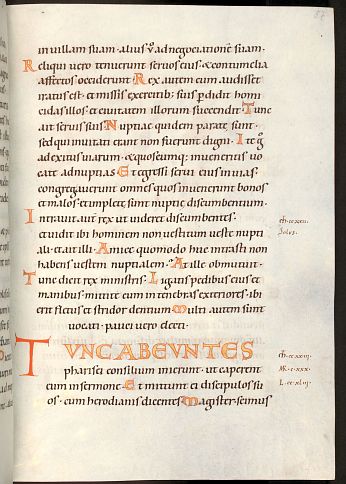 in uillam suam. alius ů ad negocationē suam.
Reliqui uero tenuerunt seruos eius. & contumelia
affectos occiderunt. Rex autem cum audisset
iratus est. et missis exercitib; suis perdidit homi
cidas illos. et ciuitatem illorum succendit. Tunc
ait seruis suis. Nuptiae quidem paratę sunt.
sed qui inuitati erant non fuerunt digni. Ite g̊
ad exitus uiarum. & quoscumq; inueneritis uo
cate ad nuptias. Et egressi serui eius in uias.
congregauerunt omnes quos inuenerunt bonos
et malos. et impletę sunt nuptię discumbentium.
Intrauit aut rex ut uideret discumbentes.
et uidit ibi hominem non uestitum ueste nupti
ali. et ait illi. Amice quomodo huc intrasti non
habens uestem nuptialem. At ille obmutuit.
Tunc dicit rex ministris. Ligatis pedibus eius et
manibus. mittite eum in tenebras exteriores. ibi
erit fletus et stridor dentium. Multi autem sunt
uocati. pauci uero electi.
TUNC ABEUNTES
pharisei consilium inierunt. ut caperent
eum in sermone. Et mittunt ei discipulos su
os. cum herodianis dicentes. Magister scimus
solus.